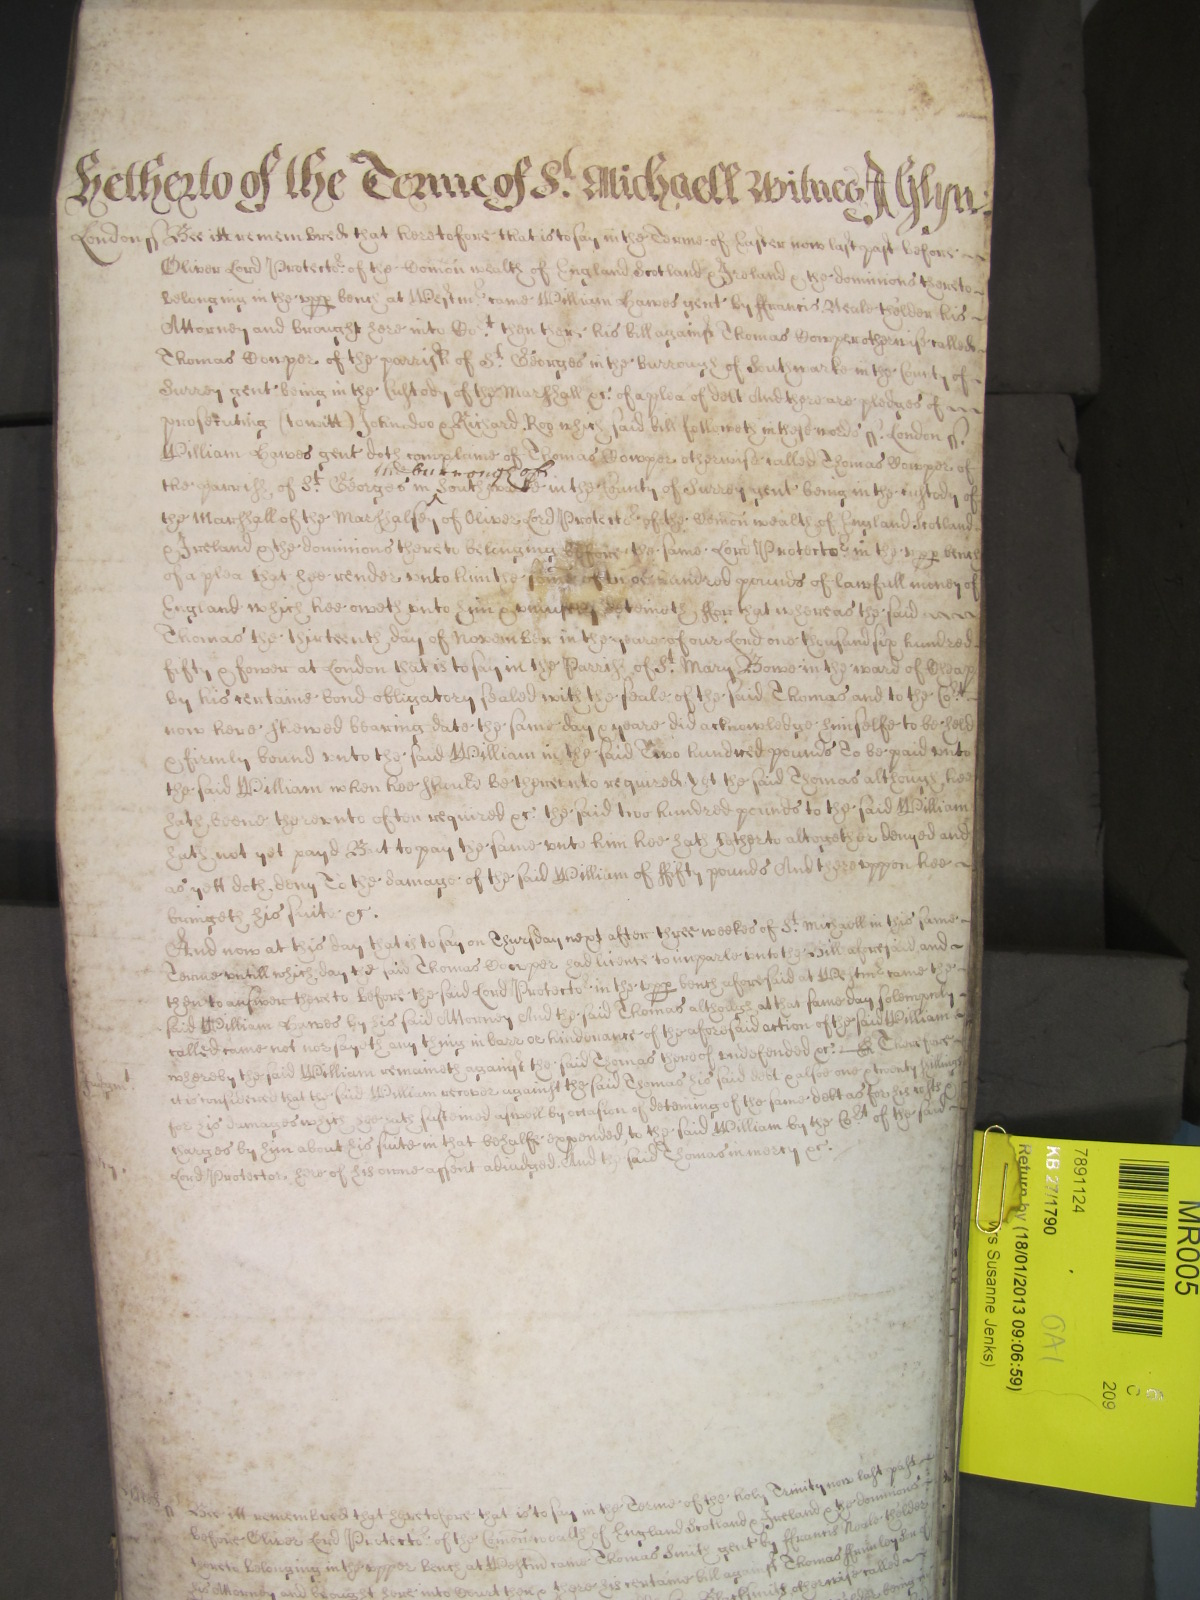 Hetherto of the Terme of St. Michaell Witnes J Glyn:
London ss Bee itt remembred that heretofore that is to say in the Terme of Easter now last past before
Oliver Lord Protector of the Comon wealth of England Scotland & Ireland & the dominions thereto
belonging in the upp bench at Westmr came William Hawes gent by ffrancis Neale thelder his
Attorney and brought here into Cort then there his bill against Thomas Cowper otherwise called
Thomas Cowper of the parrish of St Georges in the burrough of Southwarke in the County of
Surrey gent being in the Custody of the Marshall &c. of a plea of debt And there are pledges of
prosecuting (to witt) John doo & Richard Roo which said bill followeth in these words ss. London ss.
William Hawes gent doth complaine of Thomas Cowper otherwise called Thomas Cowper of
the burrough of
the parrish of St Georges in Southwarke in the County of Surrey gent being in the custody of
the Marshall of the Marshalsey of Oliver Lord Protector of the Comon wealth of England Scotland
& Ireland & the dominions thereto belonging before the same Lord Protector in the upp bench
of a plea that hee render unto him the some of two hundred pounds of lawfull money of
England which hee oweth unto him & uniustly deteineth ffor that whereas the said
Thomas the thirteenth day of November in the yeare of our Lord one thousand six hundred
fifty & fower at London that is to say in the Parrish of St. Mary Bowe in the ward of Cheap
by his certaine bond obligatory sealed with the seale of the said Thomas and to the Cort
now here shewed bearing date the same day & yeare did acknowledge himselfe to be held
& firmly bound unto the said William in the said Two hundred pounds To be paid unto
the said William when hee should be thereunto required Yet the said Thomas although hee
hath beene thereunto often required &c. the said two hundred pounds to the said William
hath not yet payd But to pay the same unto him hee hath hetherto altogether denyed and
as yett doth deny To the damage of the said William of ffifty pounds And thereuppon hee
bringeth his suite &c.
And now at this day that is to say on Thursday next after three weekes of St Michaell in this same
Terme untill which day the said Thomas Cowper had licence to imparle unto the Bill aforesaid and
then to answer thereto before the said Lord Protector in the upp bench aforesaid at Westmr came the
said William Hawes by his said Attorney And the said Thomas although at that same day solempnly
called came not nor sayeth any thing in barr or hinderance of the aforesaid action of the said William
whereby the said William remaineth against the said Thomas thereof undefended &c. Therefore
it is considered that the said William recover against the said Thomas his said debt & alsoe one & twenty shillings
for his damages which hee hath susteined aswell by occasion of deteining of the same debt as for his costs &
charges by him about his suite in that behalfe expended, to the said William by the Cort of the said
Lord Protector here of his owne assent adiudged. And the said Thomas in mercy &c.
ss Bee itt remembred that heretofore that is to say in the Terme of the holy Trinity now last past
before Oliver Lord Protector of the Comon wealth of England Scotland & Ireland & the dominions
thereto belonging in the upper bench at Westmr came Thomas Smith gent by ffrancis Neale thelder
his Attorney and brought here into Court then & there his certaine bill against Thomas
Blacksmith otherwise called
MR005
7891124
KB 27/1790
Return by (18/01/2013 09:06:59)
Mrs Susanne Jenks)
209